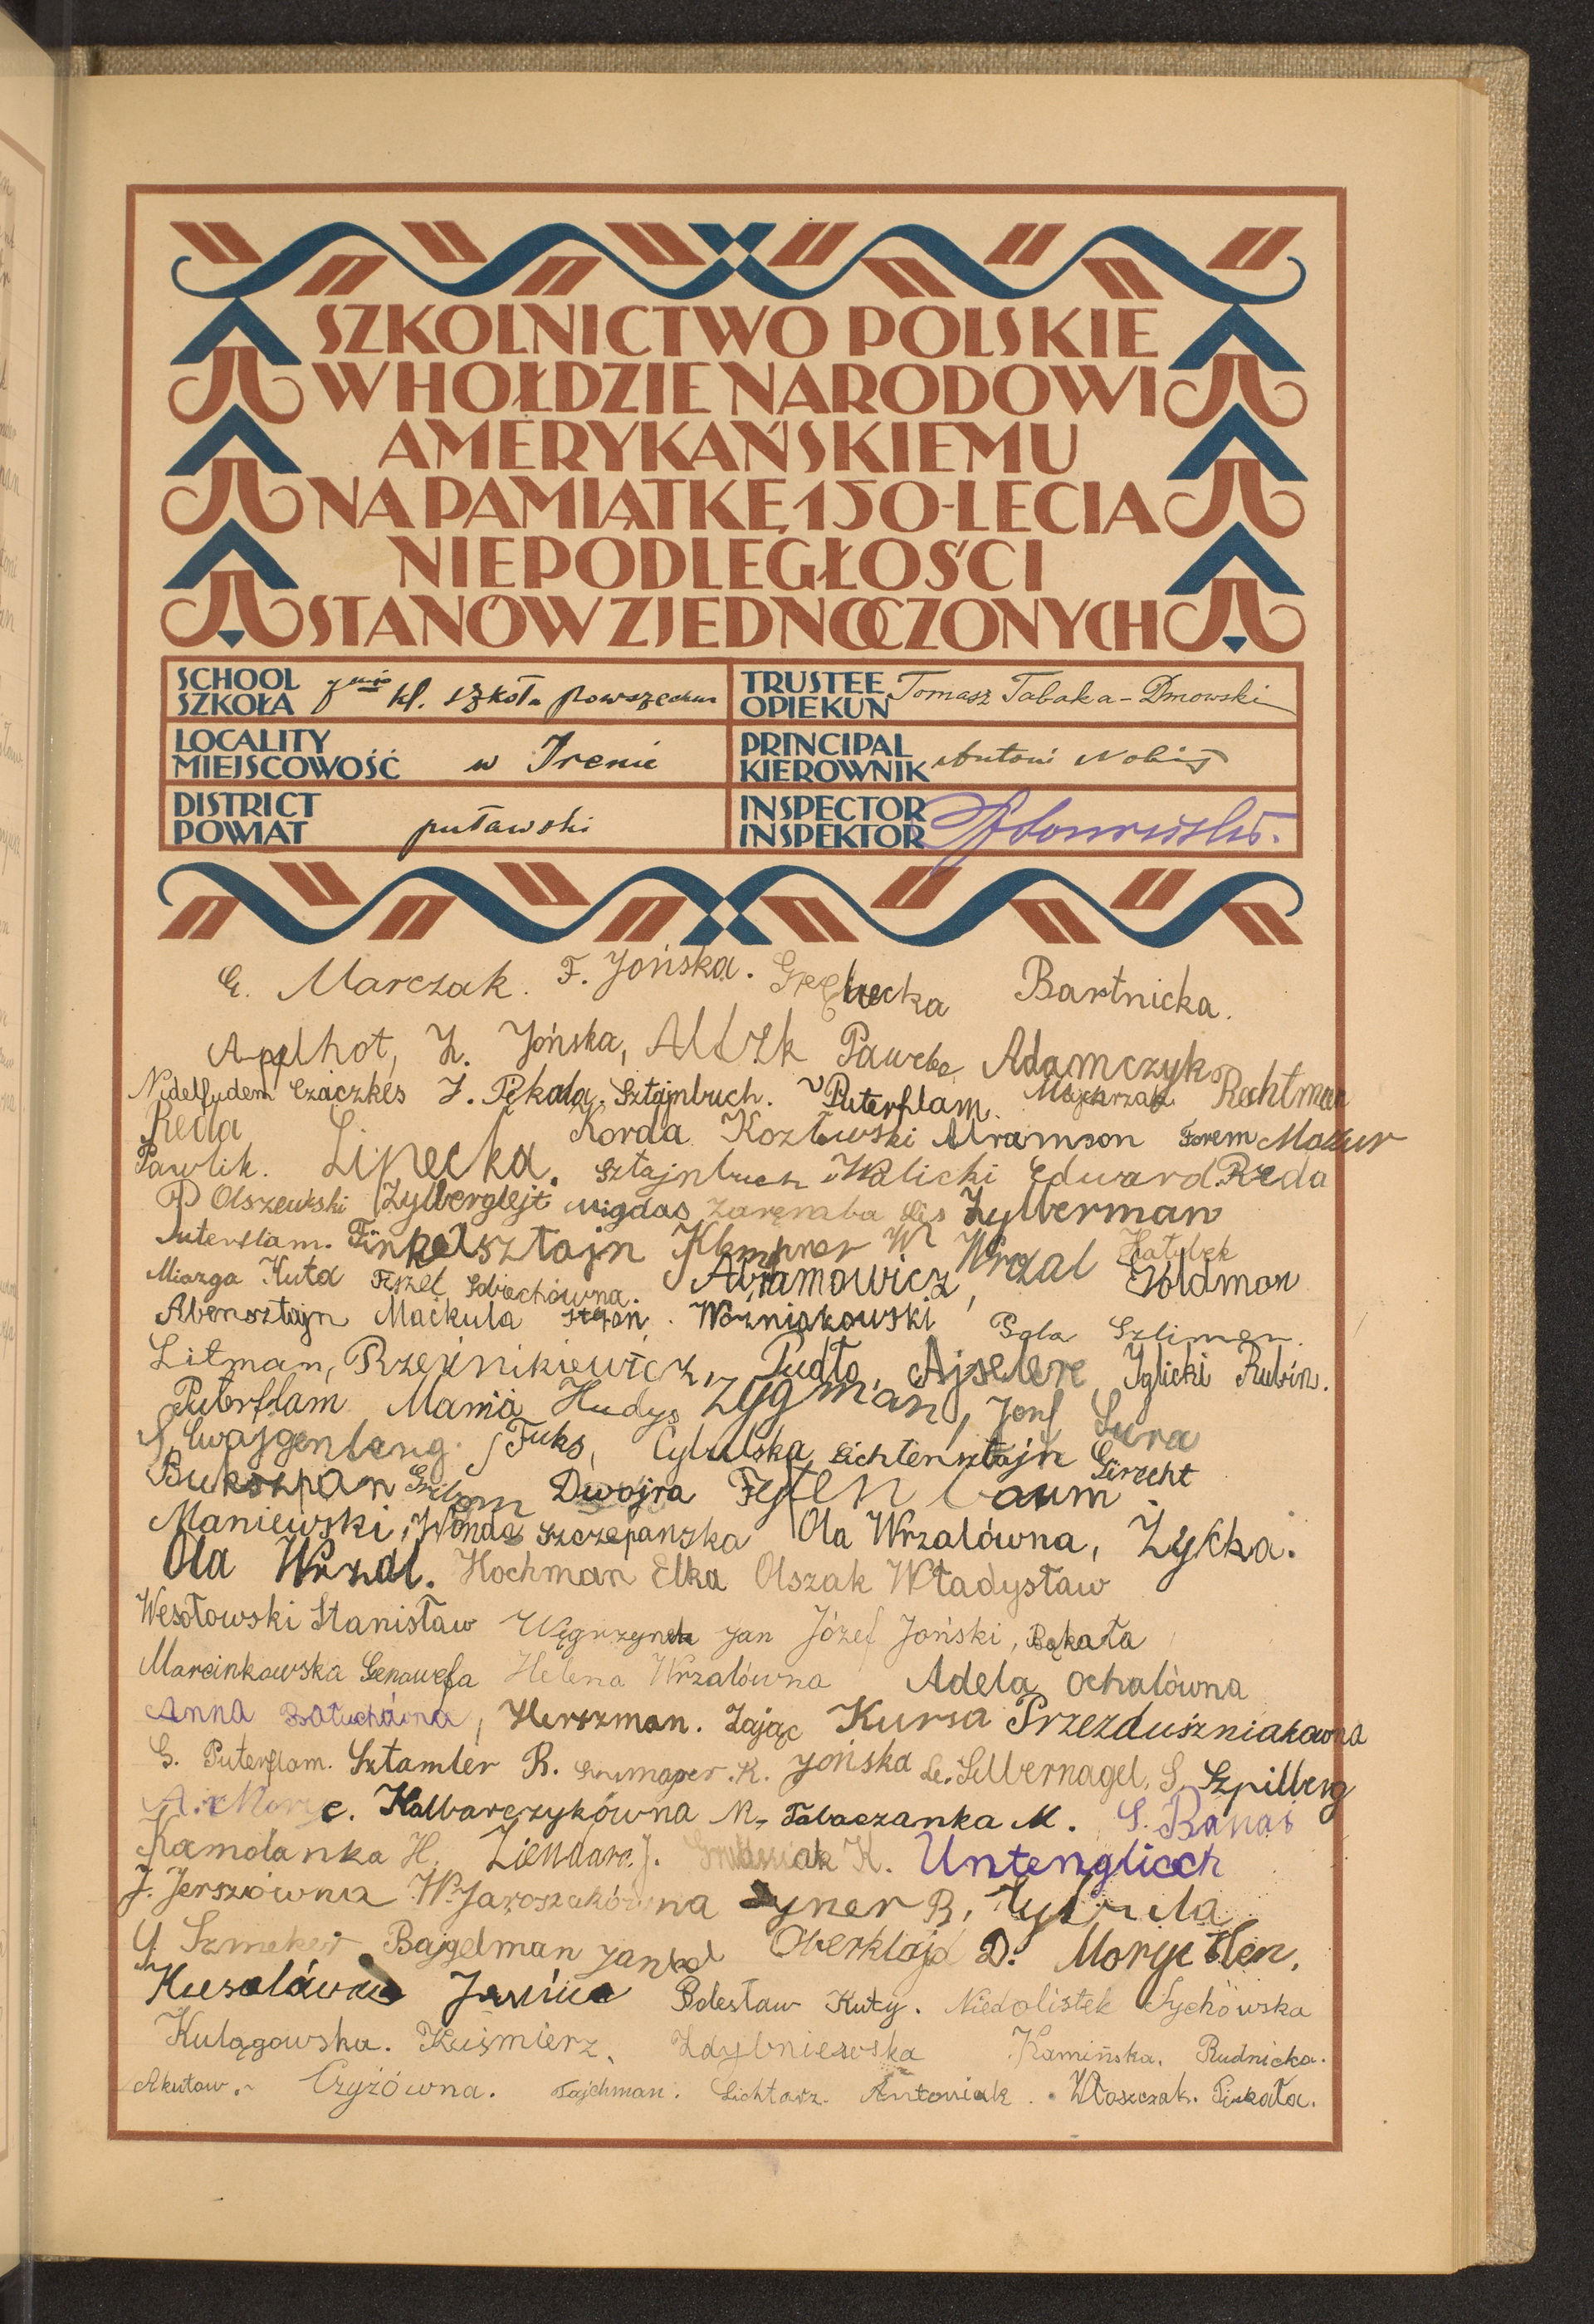 SZKOLNICTWO POLSKIE
W HOŁDZIE NARODOWI
AMERYKAŃSKIEMU
NA PAMIĄTKĘ 150-LECIA
NIEPODLEGŁOŚCI
STANÓW ZJEDNOCZONYCH
SCHOOL SZKOŁA kl. szkoła powszechna
TRUSTEE OPIEKUN Tomasz Tabaka-Dmowski
LOCALITY MIEJSCOWOŚĆ w Irenie
PRINCIPAL KIEROWNIK Antoni
DISTRICT POWIAT puławski
INSPECTOR INSPEKTOR
G. Marczak. F. Jońska. Bartnicka.
Apelhot, Z. Jońska, Adamczyk
Czaczkes J. Pękala. Sztajnbuch. Puterflam. Majchrzak Rechtman
Reda Korda Kozłowski Abramson Forem Mazur
Pawlik. Lipecka. Sztajnbuch Walicki Edward Reda
P Olszewski Zylberglejt Migdas Zaręmba Lis Zylberman
Puterflam. Finkelsztajn Klempner W Wrzal Hatylek
Miazga Kuta Fiszel Sobiechówna. Abramowicz, Goldman
Abensztajn Maćkula Stefan. Woźniakowski
Litman, Rzeźnikiewicz, Pudło, Iglicki Rubin.
Puterflam Mania Hudys Zygman, Josef Sura
S. Cwajgenberg. Fuks, Cybulska Lichtensztajn Girecht
Bukszpan Dwojra Fejgenbaum
Maniewski, Wanda Szczepanska Ola Wrzalówna, Zycka.
Ola Wrzal. Hochman Elka Olszak Władysław
Wesołowski Stanisław Węgrzynek Jan Józef Joński, Bąkała
Marcinkowska Genowefa Helena Wrzalówna Adela Ochalówna
Anna Bałuchówna, Herszman. Zając Kursa Przezduszniakowna
G. Puterflam. Sztamler R. K. Jońska Le. Silbernagel, S. Szpilberg
Kalbarczykówna M. Tabaczanka M. S. Banaś
Kamolanka H. K. Untengliock
J. Jerszówna W. Jaroszakówna Syner B.
Szmeker Bajgelman Jankel Oberklajd D. Moryc Hen.
Janina Bolesław Kuty. Niedolistek Sychowska
Kulągowska. Kuśmierz, Zdybniewska Kamińska, Rudnicka.
Czyżówna. Tajchman. Lichtarz. Antoniak. Włoszczak. Piekała.